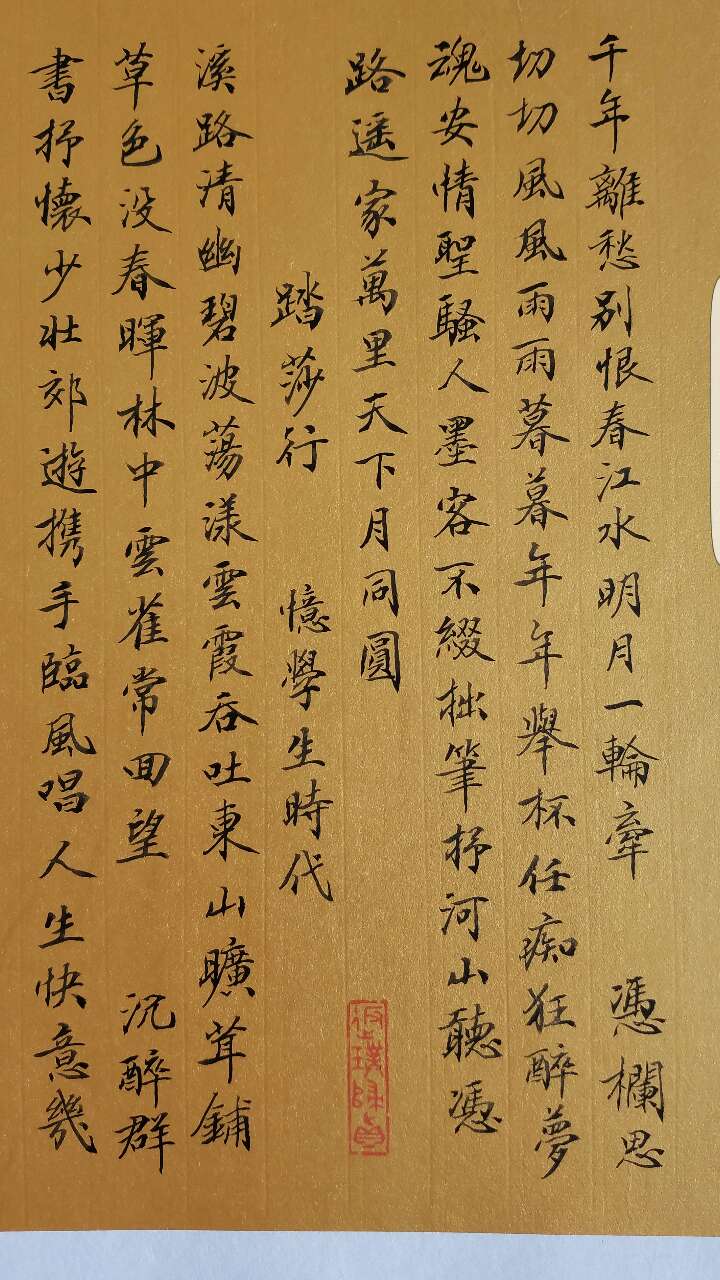 千年離愁别恨春江水明月一輪牽 憑欄思
切切風風雨雨暮暮年年舉杯任痴狂醉夢
魂安情聖騷人墨客不綴拙筆抒河山聽憑
路遥家萬里天下月同圓
踏莎行 憶學生時代
溪路清幽碧波蕩漾雲霞吞吐東山曠茸鋪
草色没春暉林中雲雀常回望 沉醉群
書抒懷少壯郊遊携手臨風唱人生快意幾